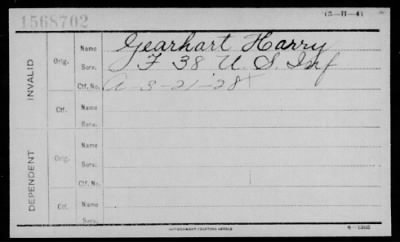 1568702
INVALID
Orig.
Name Gearhart Harry
Serv. F 38 U. S. Inf
Ctf. No. A-3-21-28
Ctf.
Name
Serv.
DEPENDENT
Orig.
Name
Serv.
Ctf. No.
Ctf.
Name
Serv.